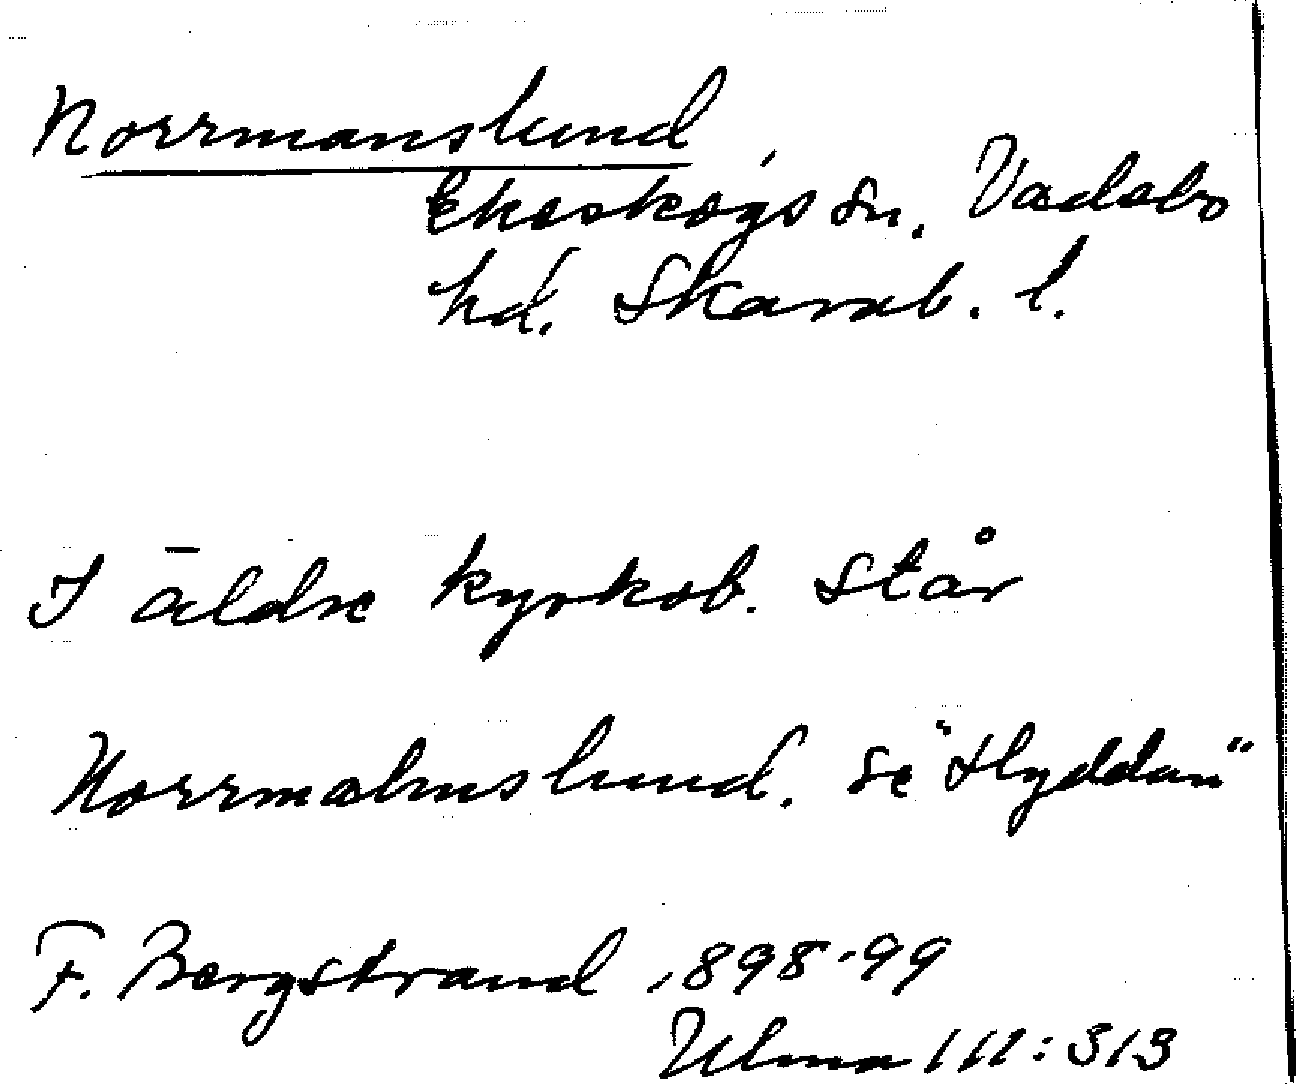 Norrmanslund,
Ekeskogs sn. Vadsbo
hd. Skarab. l.
I äldre kyrkob. står
Norrmalmslund. Se "Hyddan"
F. Bergstrand 1898-99
Ulma 111:313